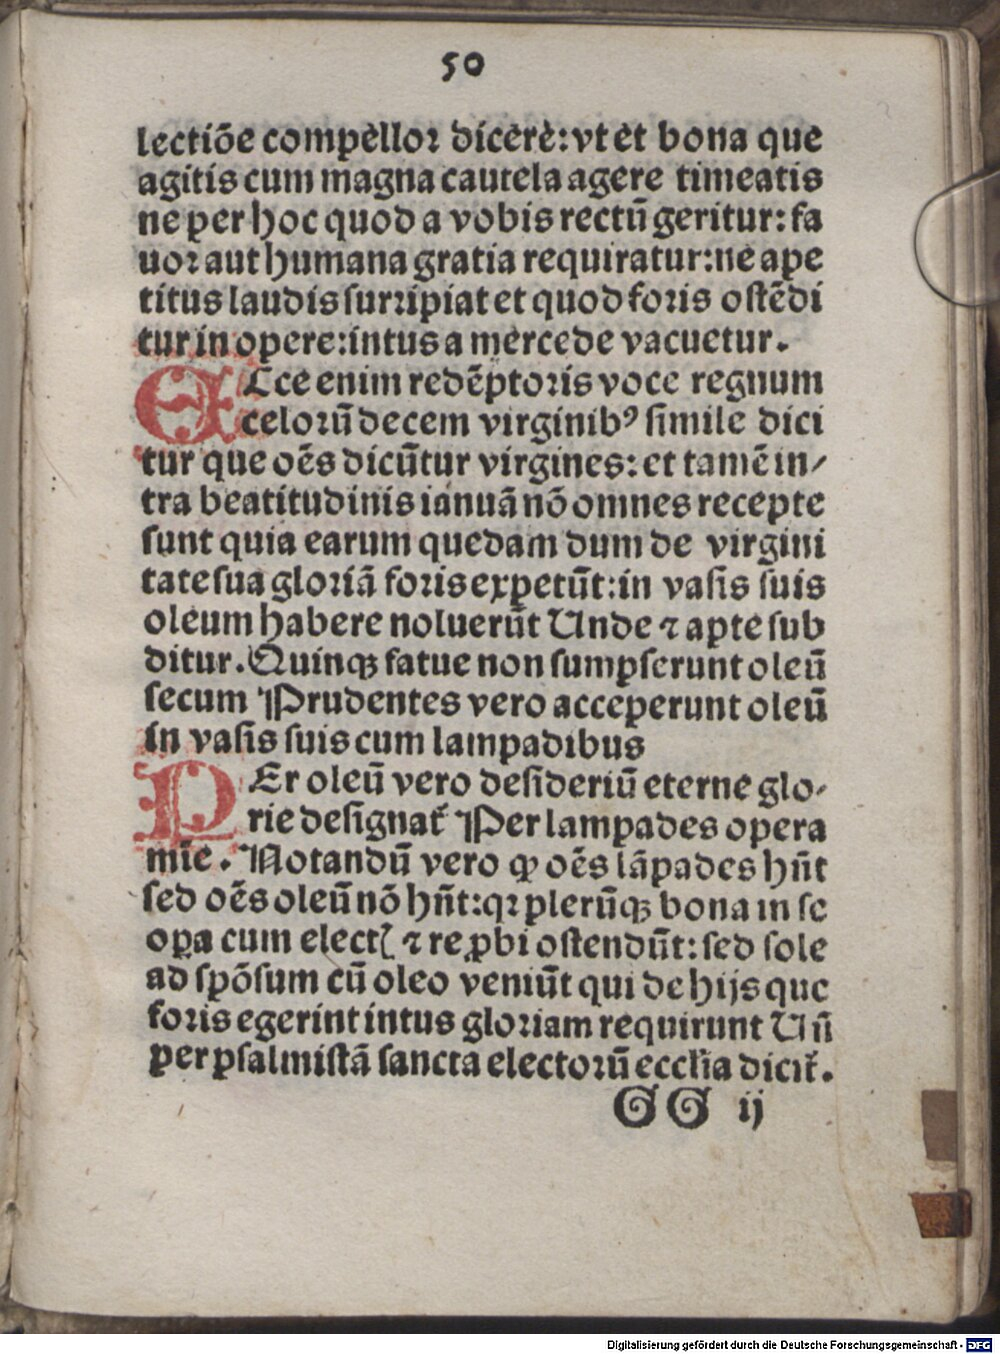 50
lectiõe compellor dicere: vt et bona que
agitis cum magna cautela agere timeatis
ne per hoc quod a vobis rectũ geritur: fa
uor aut humana gratia requiratur: ne ape
titus laudis surripiat et quod foris ostẽdi
tur in opere: intus a mercede vacuetur.
ECce enim redẽptoris voce regnum
celorũ decem virginibꝰ simile dici
tur que oẽs dicũtur virgines: et tamẽ in/
tra beatitudinis ianuã nõ omnes recepte
sunt quia earum quedam dum de virgini
tate sua gloriã foris expetũt: in vasis suis
oleum habere noluerũt Unde ⁊ apte sub
ditur. Quinqꝫ fatue non sumpserunt oleũ
secum Prudentes vero acceperunt oleũ
in vasis suis cum lampadibus
PEr oleũ vero desideriũ eterne glo/
rie designat᷑ Per lampades opera
mĩe. Notandũ vero ꝙ oẽs lãpades hñt
sed oẽs oleũ nõ hñt: qꝛ plerũqꝫ bona in se
oꝑa cum elect⁊ ⁊ reꝓbi ostendũt: sed sole
ad spõsum cũ oleo veniũt qui de hijs que
foris egerint intus gloriam requirunt Uñ
per psalmistã sancta electorũ ecclĩa dicit᷑.
GG ij
Digitalisierung gefördert durch die Deutsche Forschungsgemeinschaft - DFG